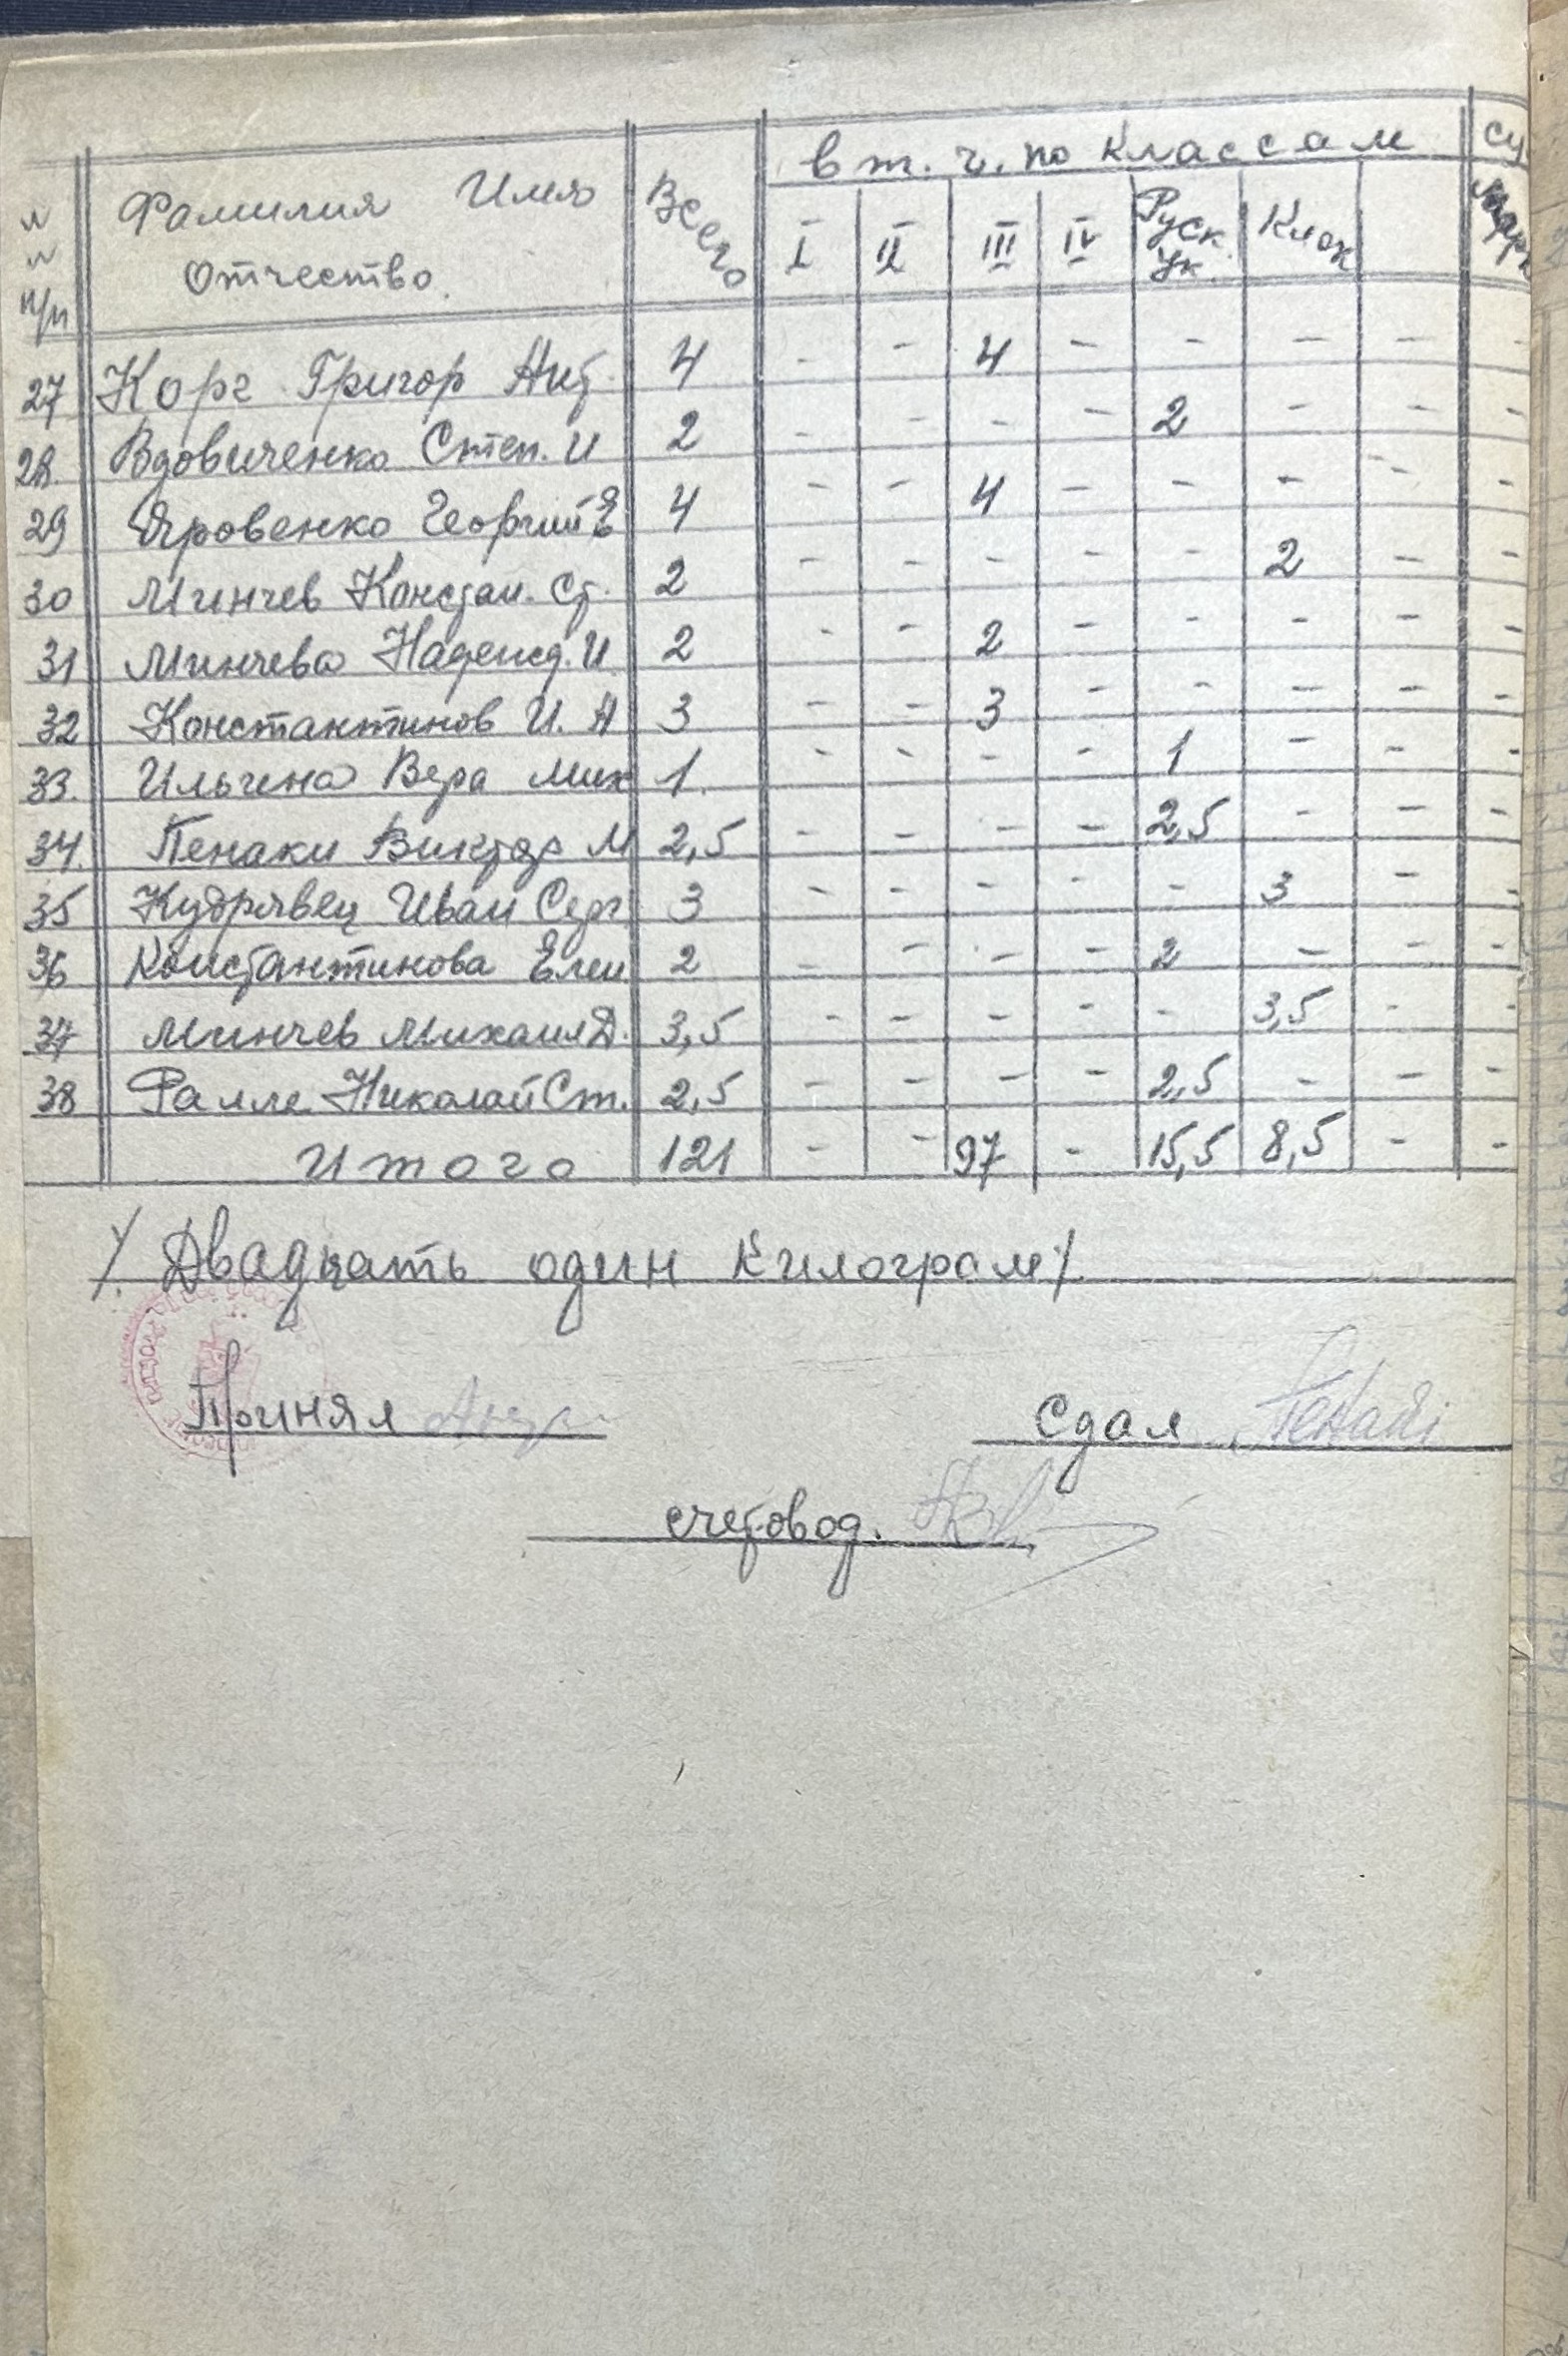 в т. ч. по классам
Фамилия Имя Отчество. Всего I II III IV Руск ук. Клок
п/п
27 Корг Григор Ант. 4 - - 4 - - - - -
28. Вдовиченко Степ. И 2 - - - - 2 - - -
29 Яровенко Георгий Е 4 - - 4 - - - - -
30 Минчев Констан. Ст. 2 - - - - - 2 - -
31 Минчева Надежд. И 2 - - 2 - - - - -
32 Константинов И. А 3 - - 3 - - - - -
33. Ильчена Вера Мих 1. - - - - 1 - - -
34. Пенаки Виктор М 2,5 - - - - 2,5 - - -
35 Кудрявец Иван Серг 3 - - - - - 3 - -
36 Константинова Елен 2 - - - - 2 - - -
37 Минчев Михаил Д. 3,5 - - - - - 3,5 - -
38 Фалле Николай Ст. 2,5 - - - - 2,5 - - -
Итого 121 - - 97 - 15,5 8,5 - -
/. Двадцать один килограм/.
Принял Сдал
счетовод.